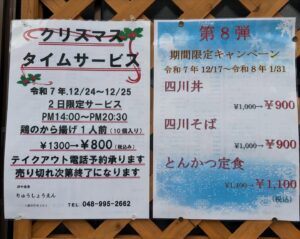 クリスマス
タイムサービス
令和7年.12/24〜12/25
2日限定サービス
PM14:00〜PM20:30
鶏のから揚げ1人前(10個入り)
¥1300→¥800(税込み)
テイクアウト電話予約承ります
売り切れ次第終了になります
りゅうしょうえん
TEL 048-995-2662
第8弾
期間限定キャンペーン
令和7年 12/17〜令和8年 1/31
四川丼
¥1,000→¥900
四川そば
¥1,000→¥900
とんかつ定食
→¥1,100
(税込)